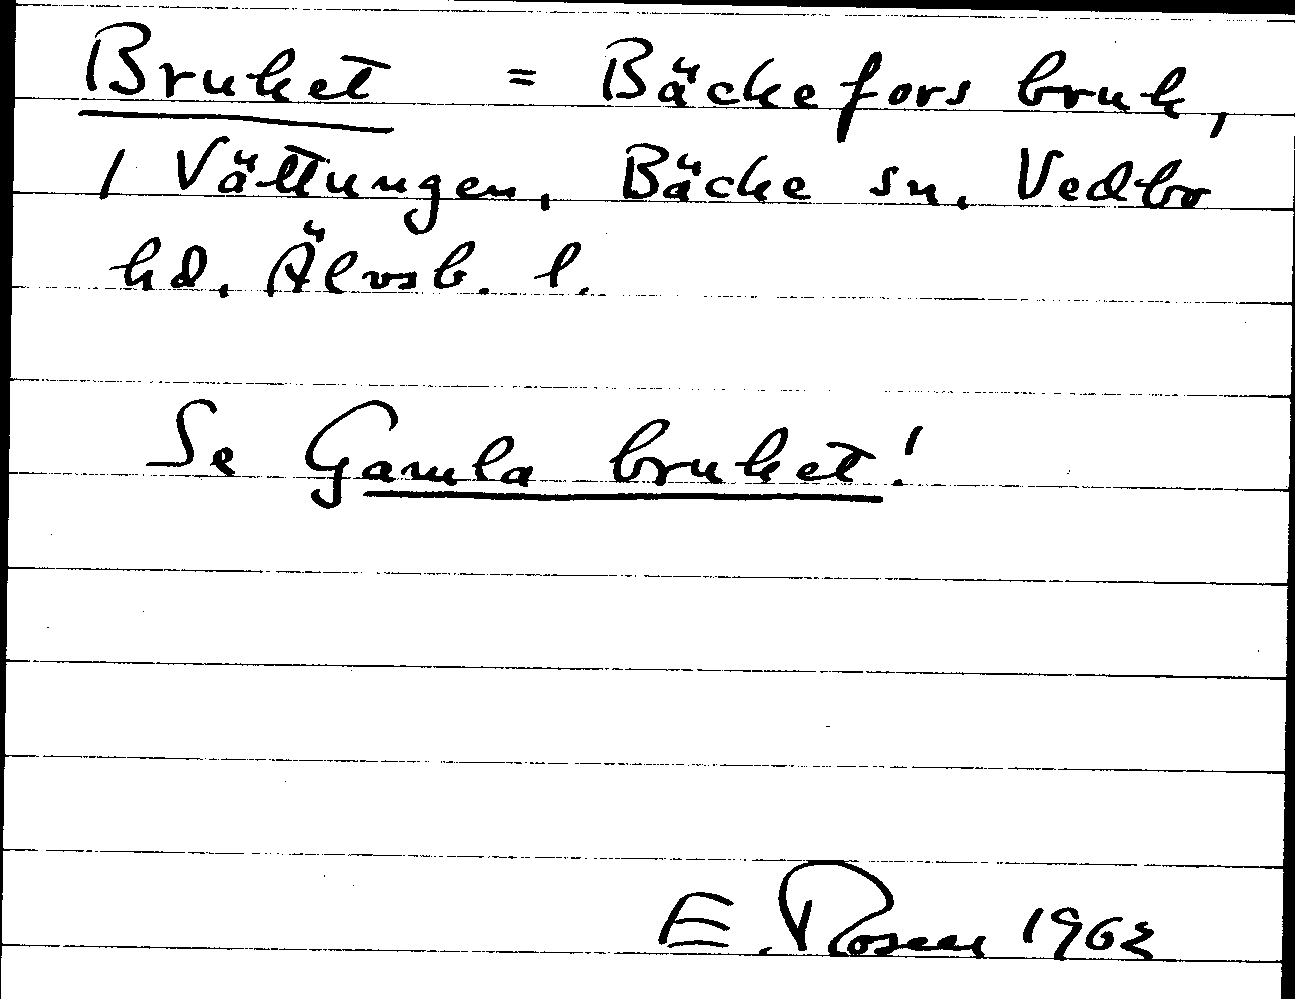 Bruket = Bäckefors bruk,
1 Vättungen, Bäcke sn. Vedbo
hd. Älvsb. l.
Se Gamla bruket!
E. Rosen 1962